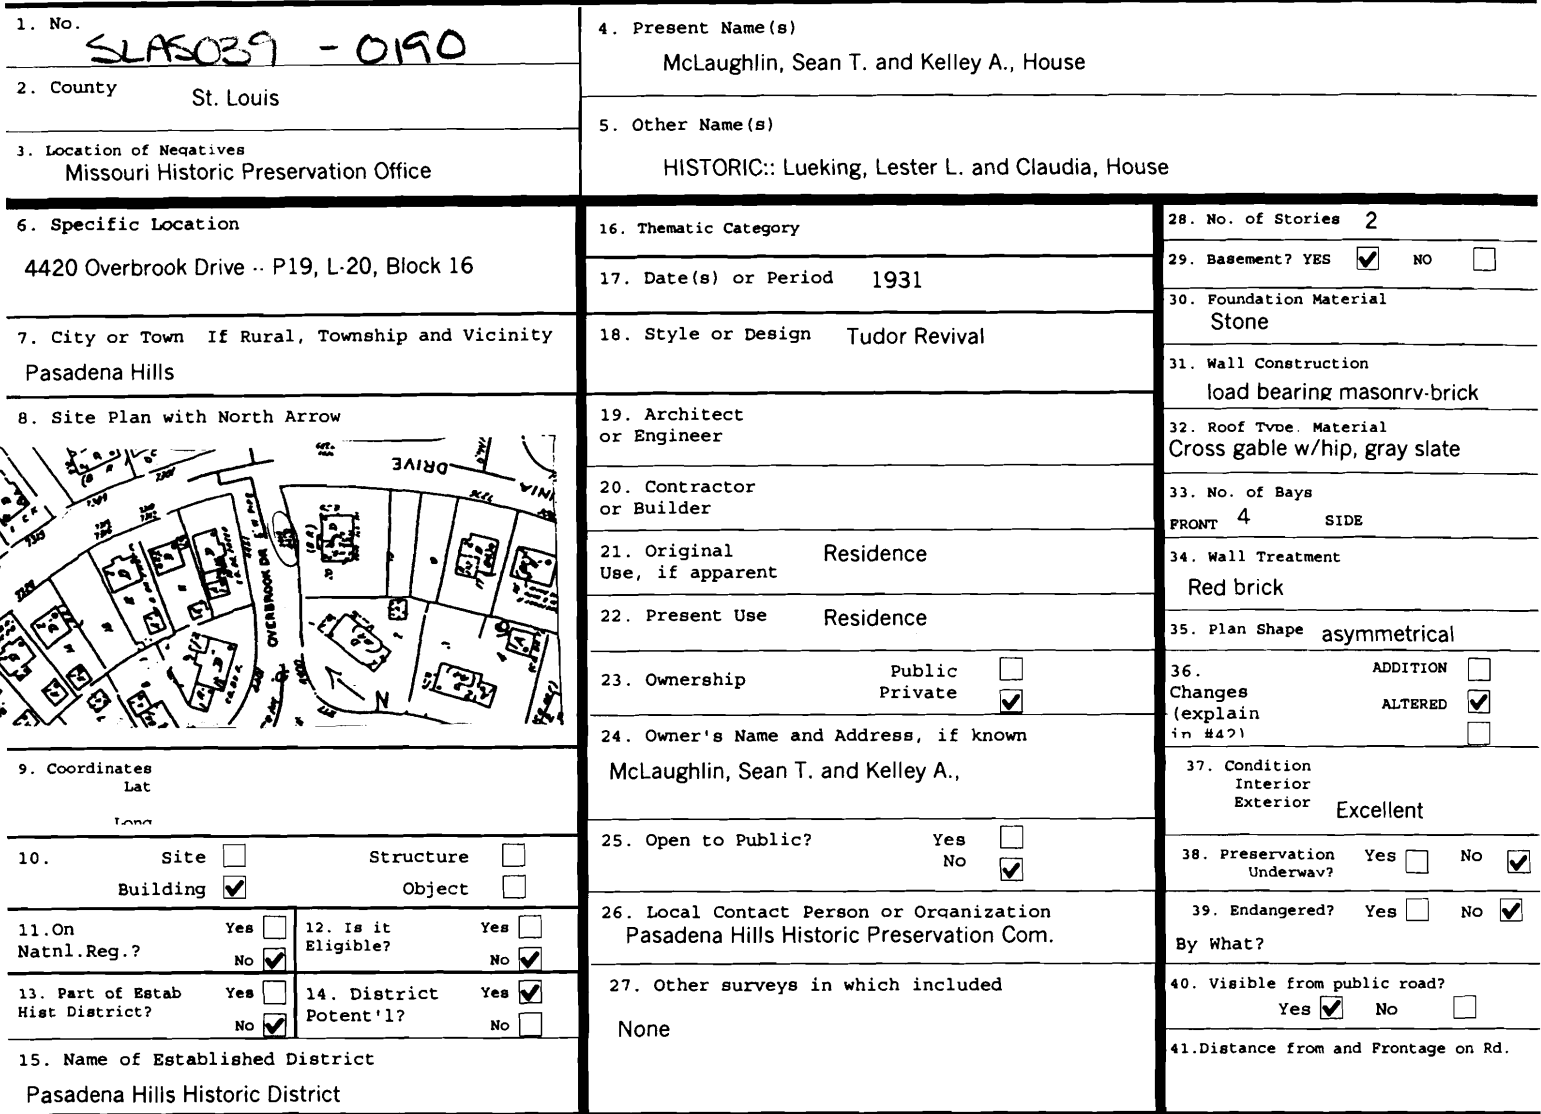 1. No.
SLAS039 - 0190
2. County
St. Louis
3. Location of Negatives
Missouri Historic Preservation Office
4. Present Name(s)
McLaughlin, Sean T. and Kelley A., House
5. Other Name(s)
HISTORIC:: Lueking, Lester L. and Claudia, House
6. Specific Location
4420 Overbrook Drive -- P19, L-20, Block 16
7. City or Town If Rural, Township and Vicinity
Pasadena Hills
8. Site Plan with North Arrow
DRIVE
OVERBROOK DR
N
9. Coordinates
Lat
Long
10. Site Structure
Building Object
11.On
Natnl.Reg.?
Yes
No
12. Is it
Eligible?
Yes
No
13. Part of Estab
Hist District?
Yes
No
14. District
Potent'l?
Yes
No
15. Name of Established District
Pasadena Hills Historic District
16. Thematic Category
17. Date(s) or Period 1931
18. Style or Design Tudor Revival
19. Architect
or Engineer
20. Contractor
or Builder
21. Original
Use, if apparent
Residence
22. Present Use Residence
23. Ownership
Public
Private
24. Owner's Name and Address, if known
McLaughlin, Sean T. and Kelley A.,
25. Open to Public?
Yes
No
26. Local Contact Person or Organization
Pasadena Hills Historic Preservation Com.
27. Other surveys in which included
None
28. No. of Stories 2
29. Basement? YES NO
30. Foundation Material
Stone
31. Wall Construction
load bearing masonry-brick
32. Roof Type. Material
Cross gable w/hip, gray slate
33. No. of Bays
FRONT 4 SIDE
34. Wall Treatment
Red brick
35. Plan Shape asymmetrical
36.
Changes
(explain
in #42)
ADDITION
ALTERED
37. Condition
Interior
Exterior Excellent
38. Preservation
Underway?
Yes No
39. Endangered? Yes No
By What?
40. Visible from public road?
Yes No
41.Distance from and Frontage on Rd.